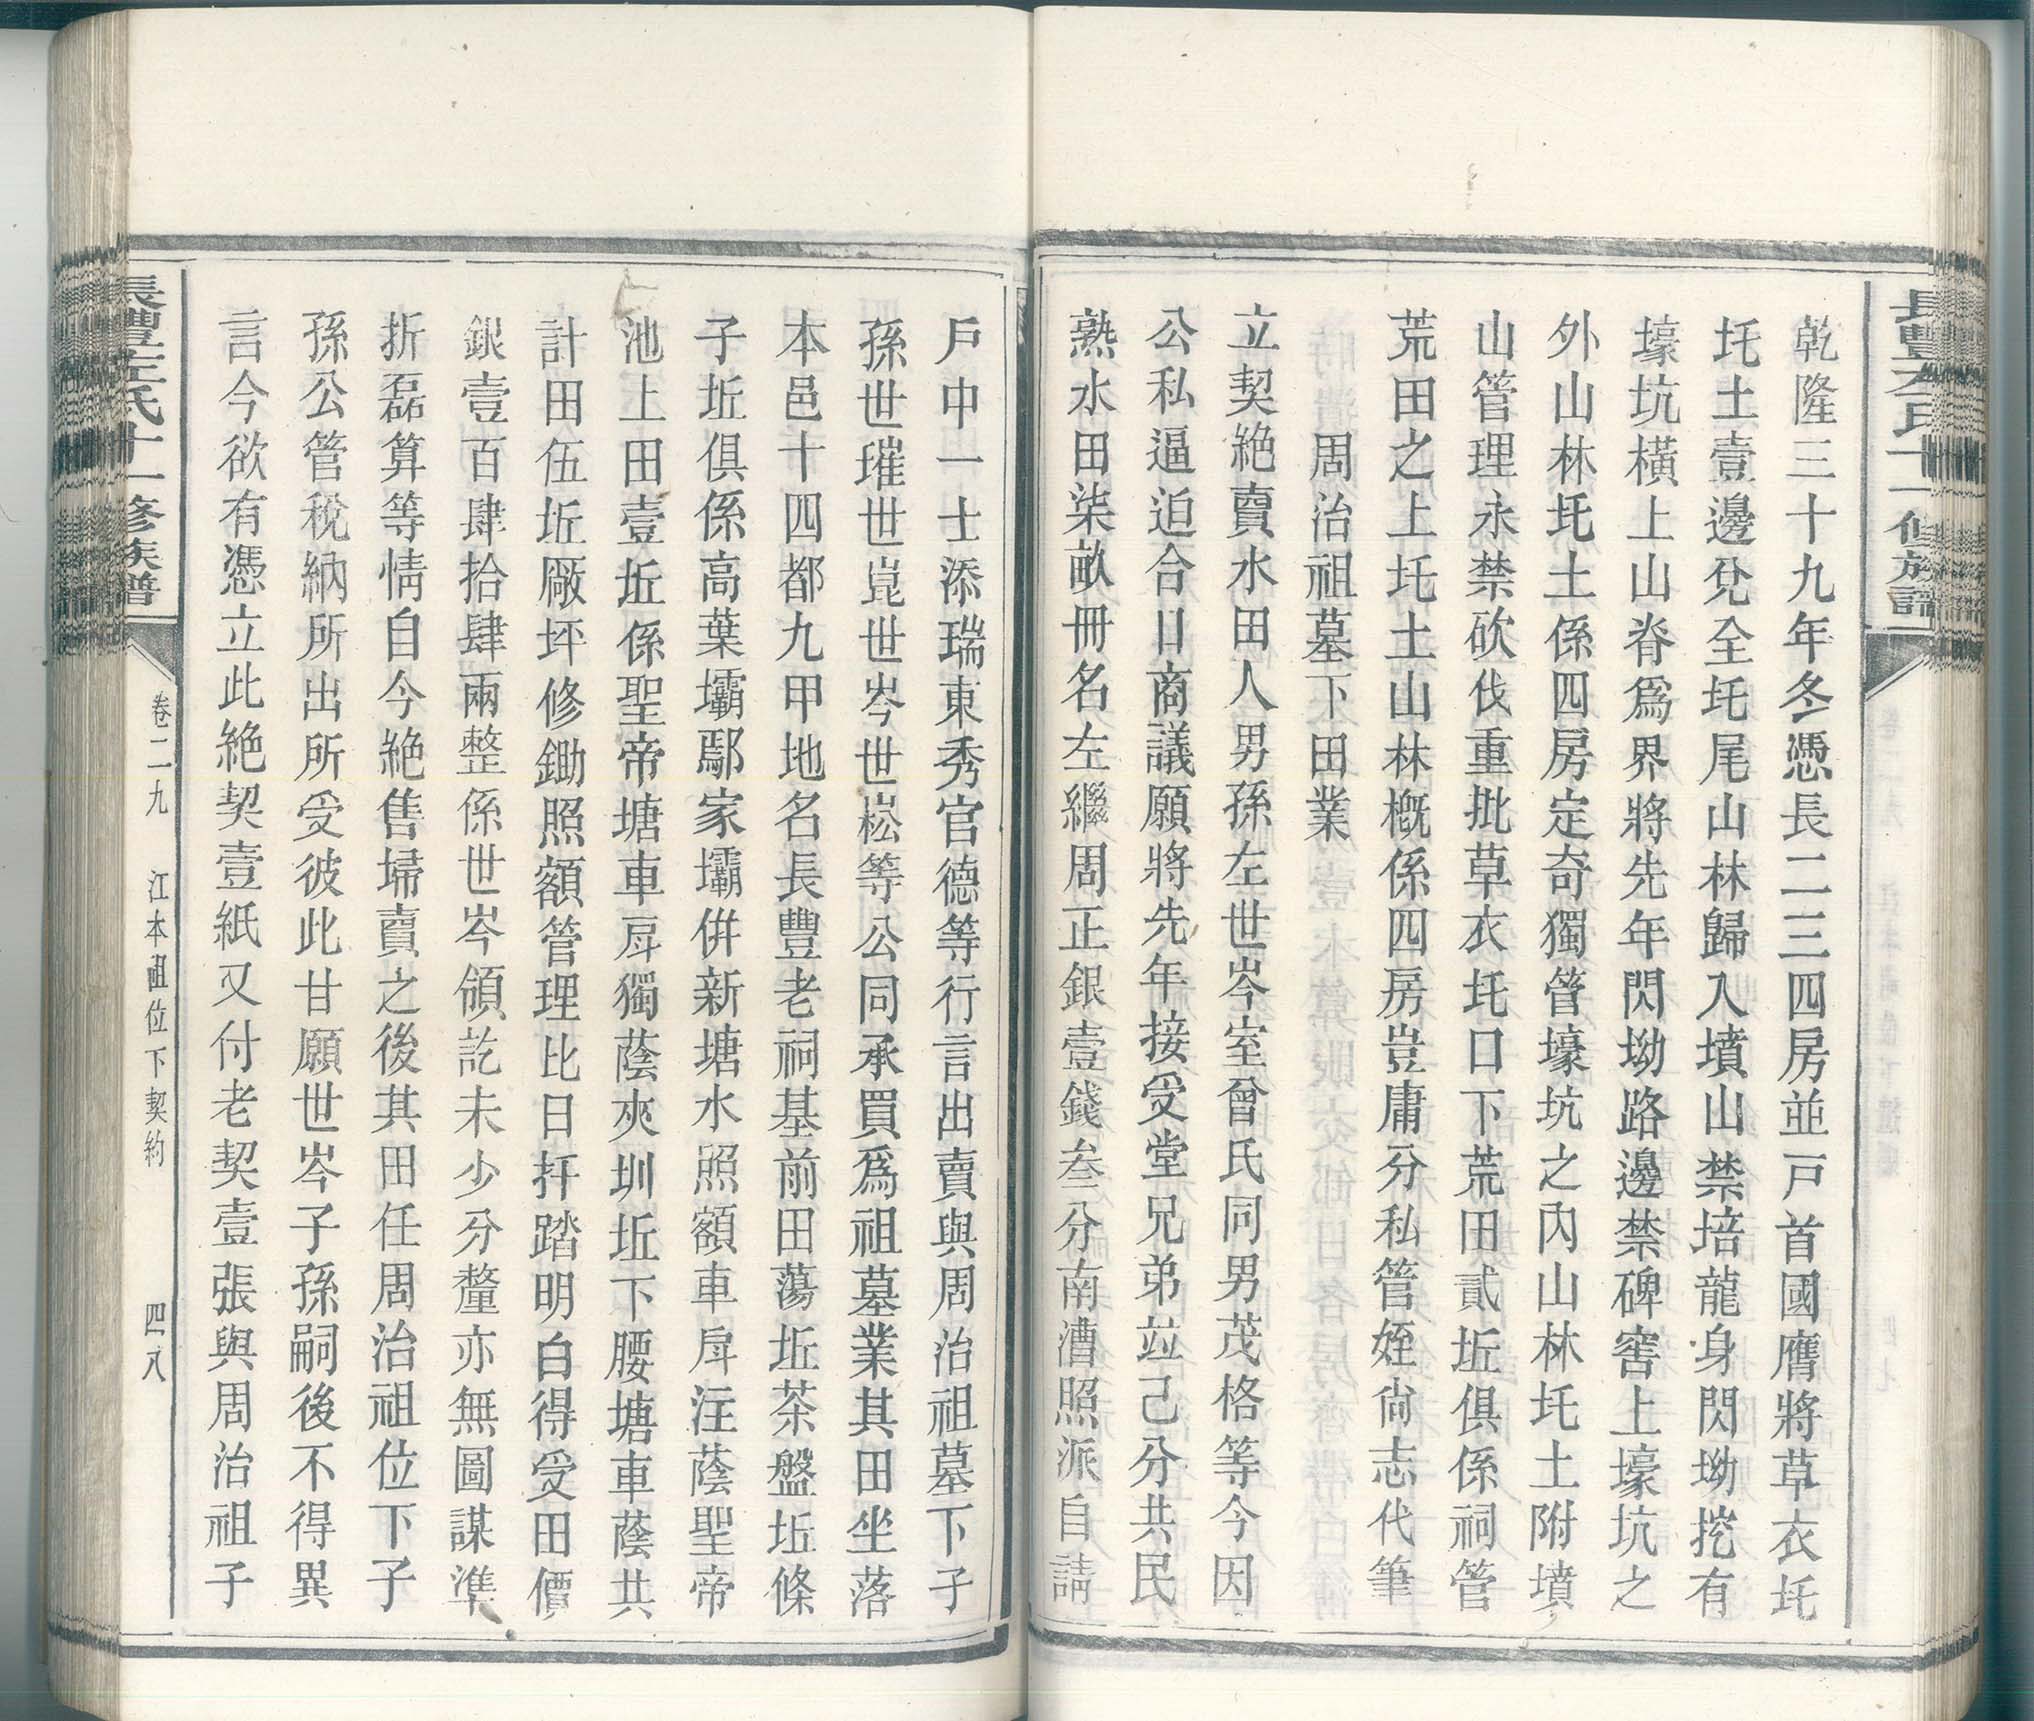 長豐左氏十一修族譜
乾隆三十九年冬憑長二三四房並戸首國膺將草衣圫
圫土壹邊兌全圫尾山林歸入墳山禁培龍身閃坳挖有
壕坑橫上山脊爲界將先年閃坳路邊禁碑窖上壕坑之
外山林圫土係四房定奇獨管壕坑之內山林圫土附墳
山管理永禁砍伐重批草衣圫口下荒田貳坵俱係祠管
荒田之上圫土山林概係四房豈庸分私管姪尚志代筆
周治祖墓下田業
立契絶賣水田人男孫左世岑室曾氏同男茂格等今因
公私逼迫合口商議願將先年接受堂兄弟竝己分共民
熟水田柒畝冊名左繼周正銀壹錢叁分南漕照派自請
戶中一士添瑞東秀官德等行言出賣與周治祖墓下子
孫世璀世崑世岑世崧等公同承買爲祖墓業其田坐落
本邑十四都九甲地名長豐老祠基前田蕩坵茶盤坵條
子坵俱係高葉壩鄢家壩併新塘水照額車戽注蔭聖帝
池上田壹坵係聖帝塘車戽獨蔭夾圳坵下腰塘車蔭共
計田伍坵廠坪修鋤照額管理比日扦踏明白得受田價
銀壹百肆拾肆兩整係世岑領訖未少分釐亦無圖謀準
折磊算等情自今絶售埽賣之後其田任周治祖位下子
孫公管稅納所出所受彼此甘願世岑子孫嗣後不得異
言今欲有憑立此絶契壹紙又付老契壹張與周治祖子
長豐左氏十一修族譜
卷二九 江本祖位下契約 四八